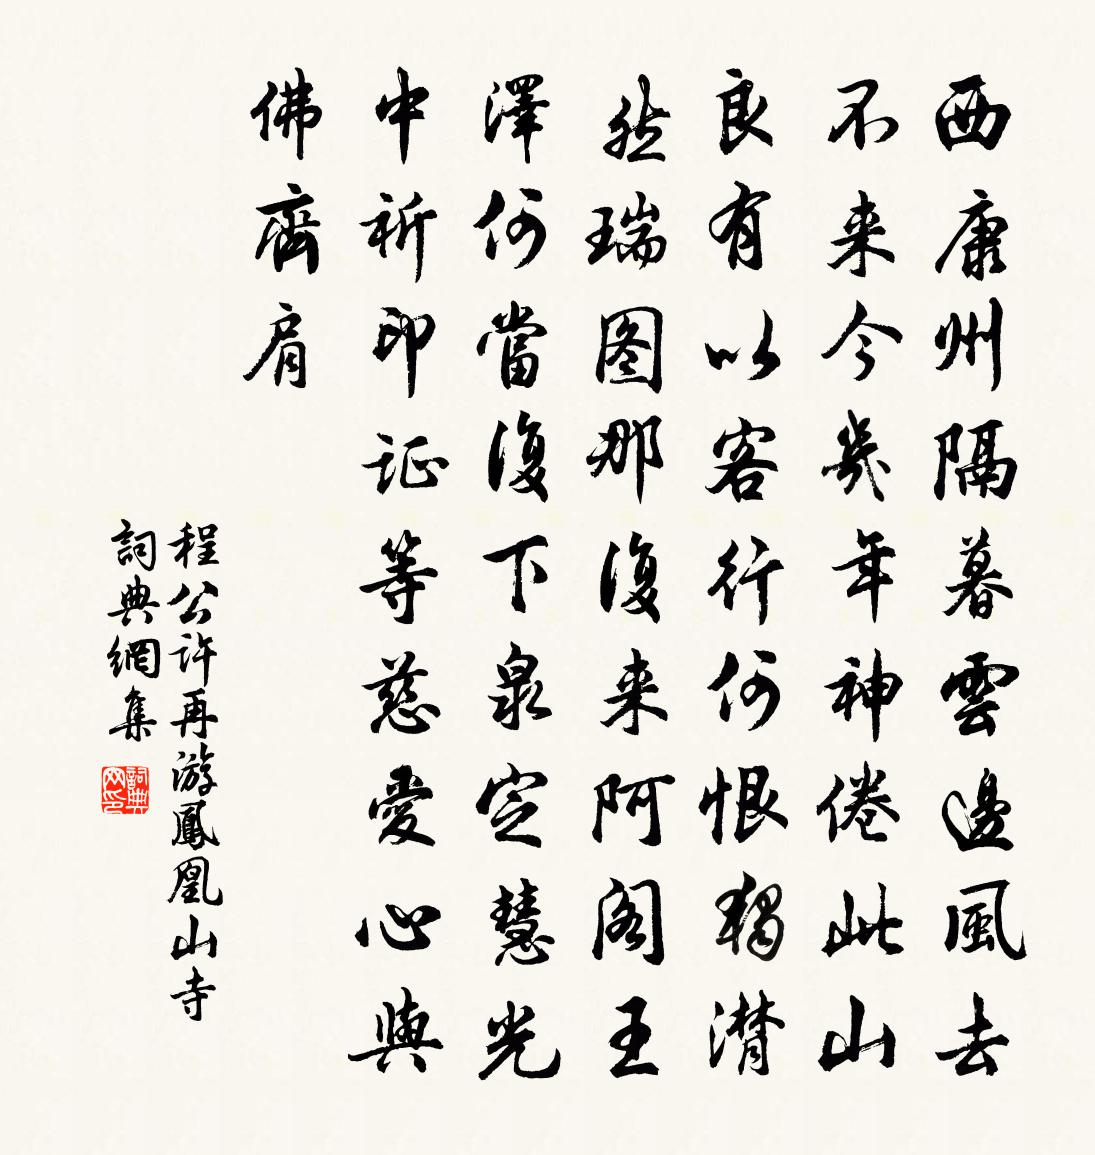 西康州隔暮雲邊風去
不来今幾年神倦此山
良有以客行何恨獨潸
然瑞图那復来阿阁王
澤何當復下泉定慧光
中祈印证等慈愛心與
佛齊肩
程公许再游鳳凰山寺
詞典網集
詞典网印